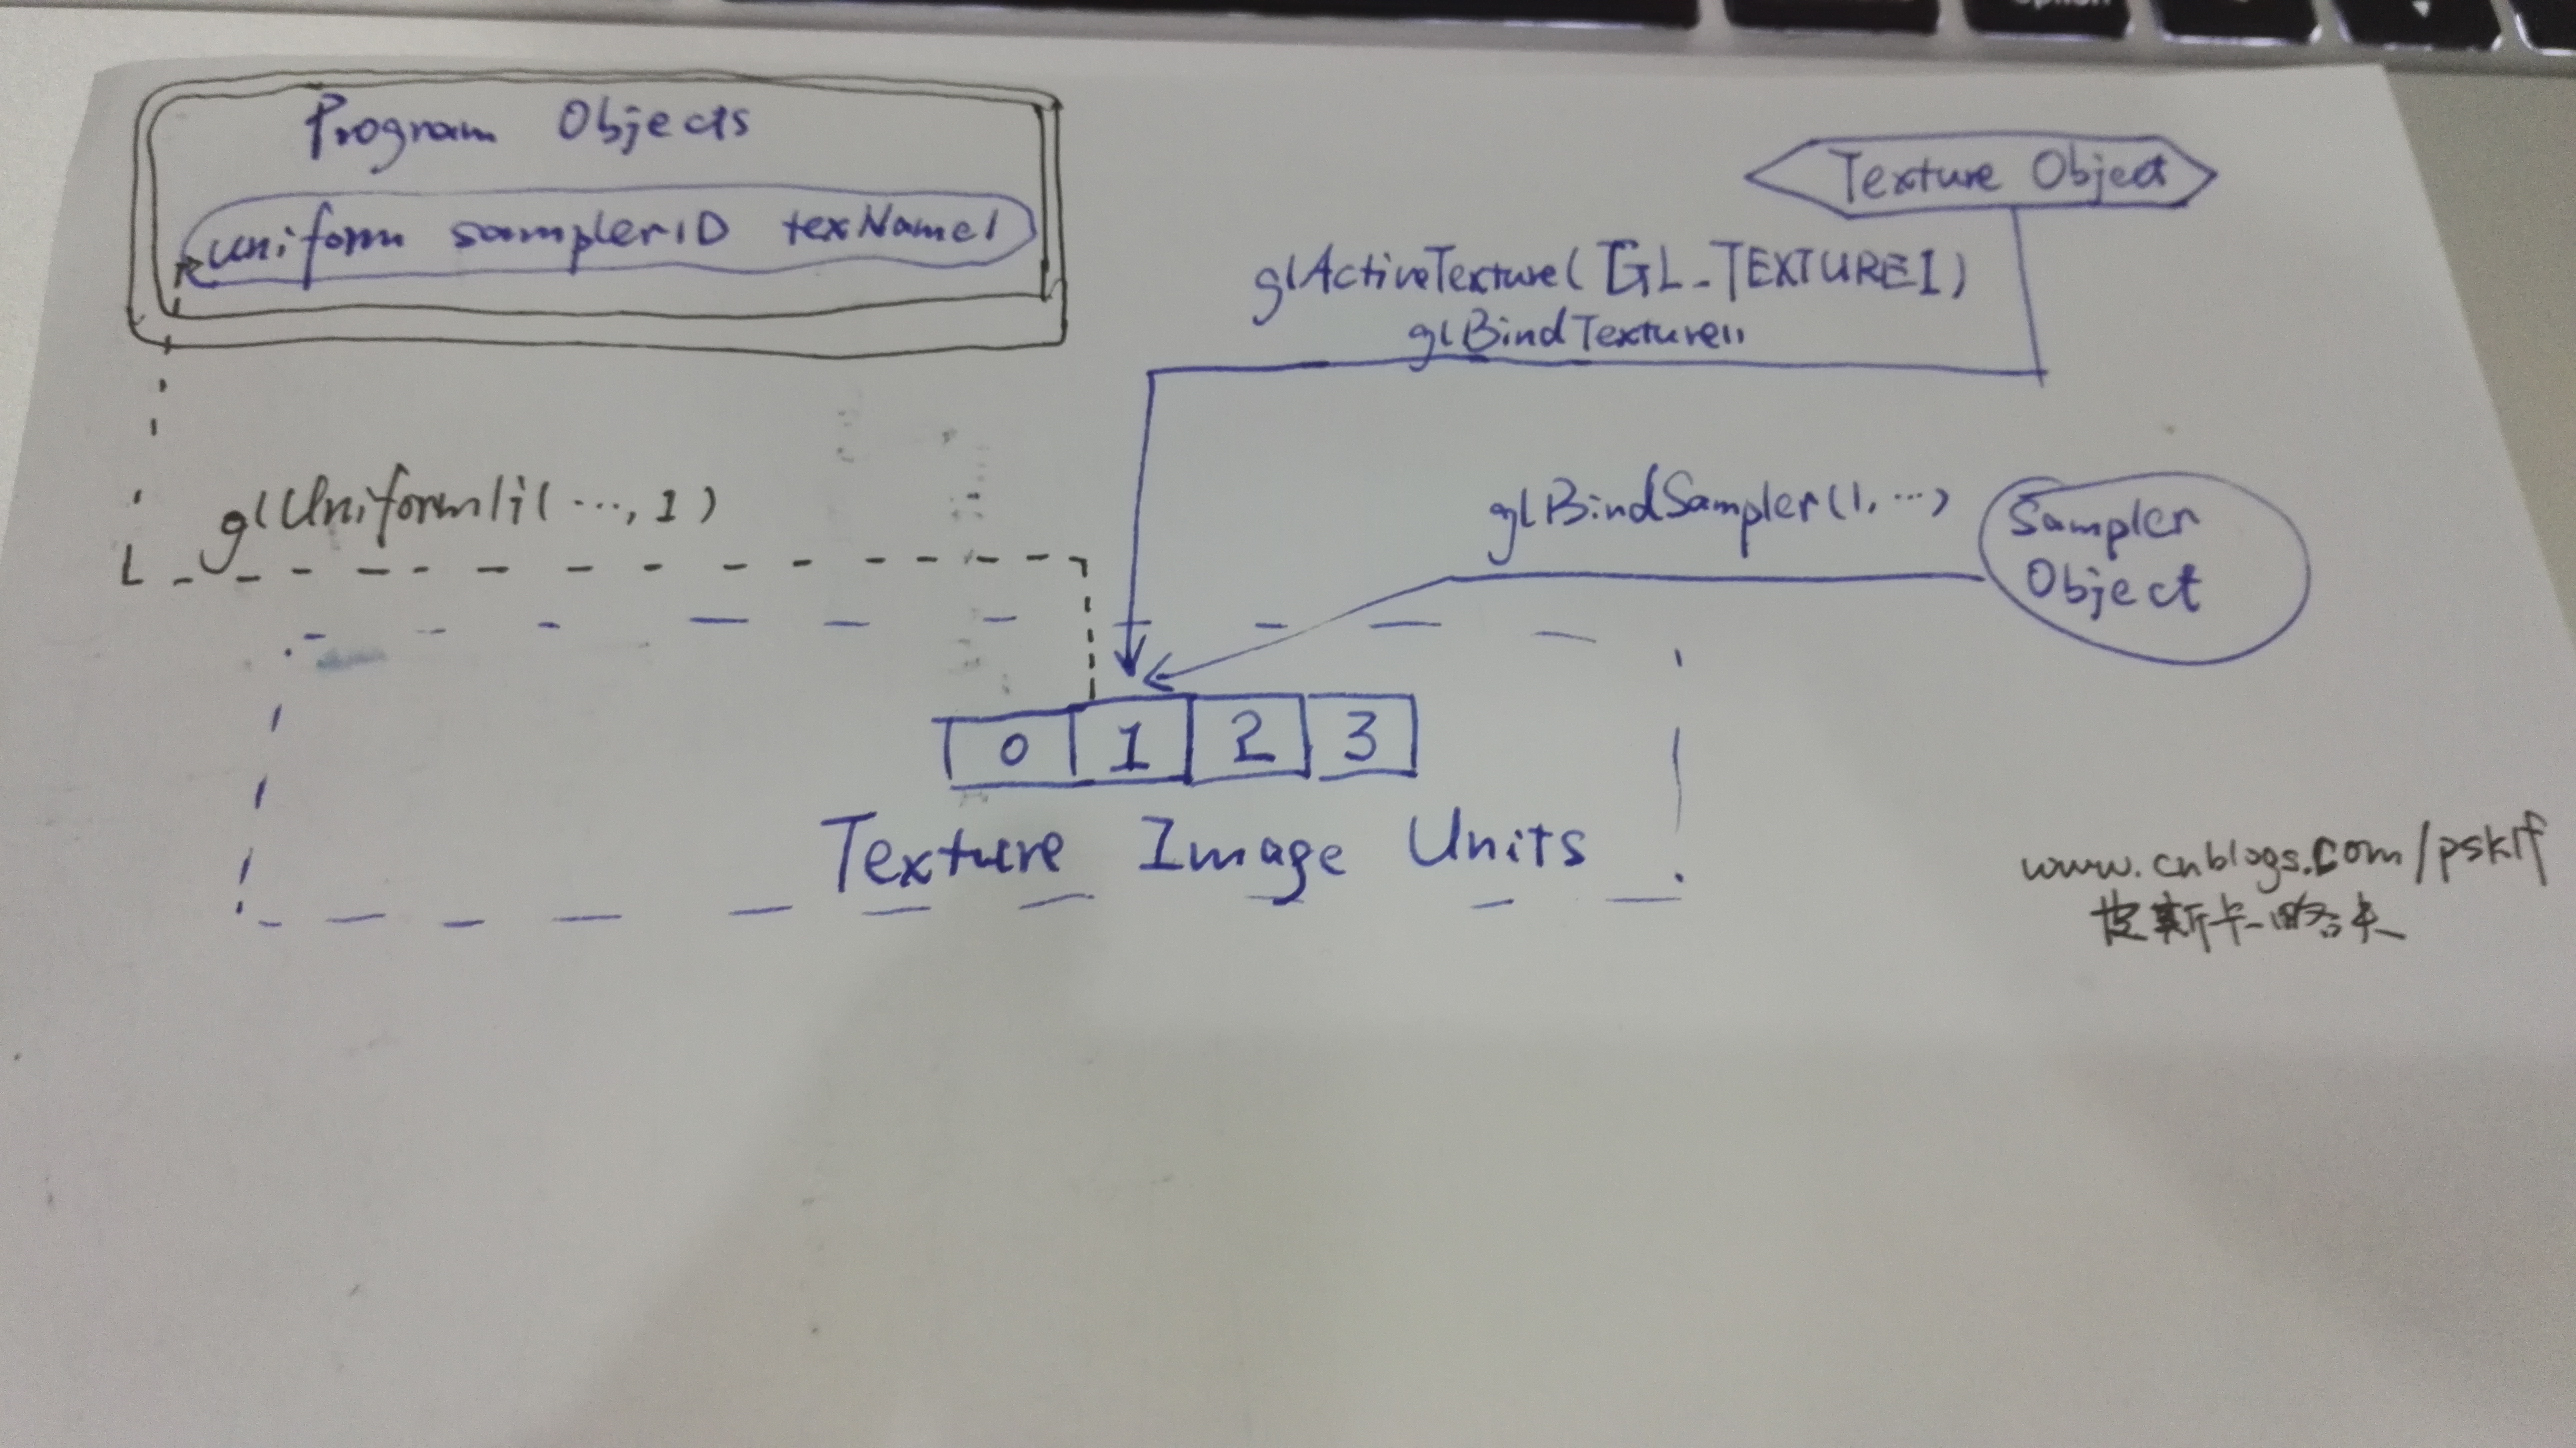 Program Objects
uniform sampler1D texName1
Texture Object
glActiveTexture(GL_TEXTURE1)
glBindTexture()
glUniform1i(...,1)
glBindSampler(1,...)
Sampler
Object
0 1 2 3
Texture Image Units
www.cnblogs.com/psklf
皮斯卡略夫